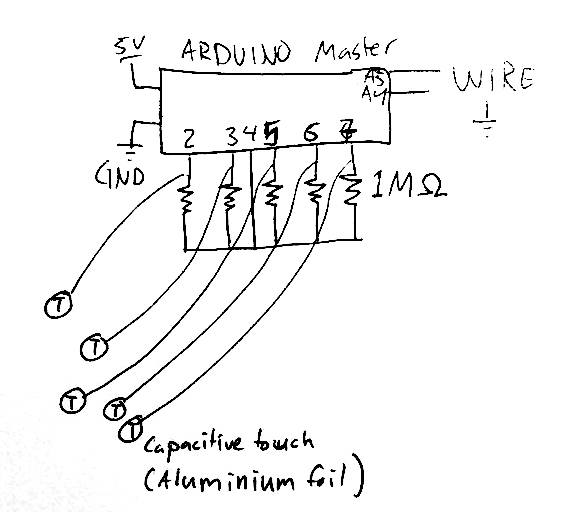 5V
ARDUINO Master
A5
A4
WIRE
GND
2 3 4 5 6 7
1MΩ
T
T
T
T
T
Capacitive touch
(Aluminium foil)